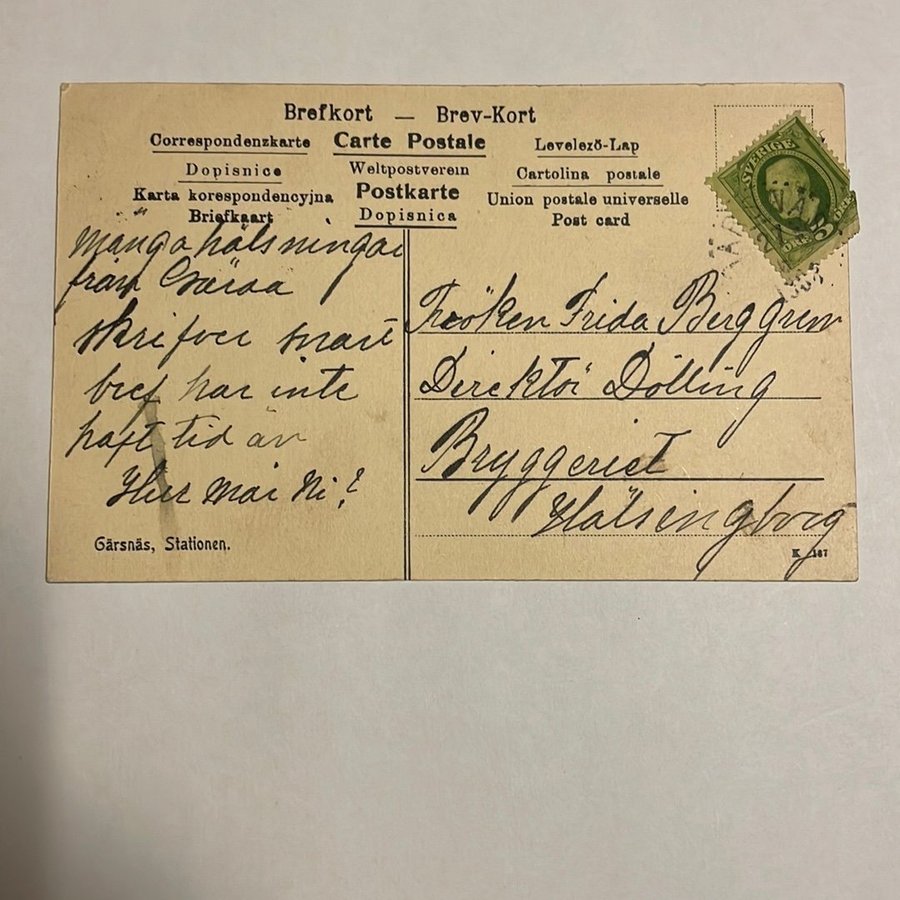 Brefkort — Brev-Kort
Correspondenzkarte Carte Postale Levelező-Lap
Dopisnice Weltpostverein Cartolina postale
Karta korespondencyjna Postkarte Union postale universelle
Briefkaart Dopisnica Post card
SVERIGE
Många hälsningar
från
skrifver snart
bref har inte
haft tid än
Hur mår Ni?
Gärsnäs, Stationen.
Fröken Frida Berggren
Direktör Dölling
Bryggeriet
Hälsingborg
K 187